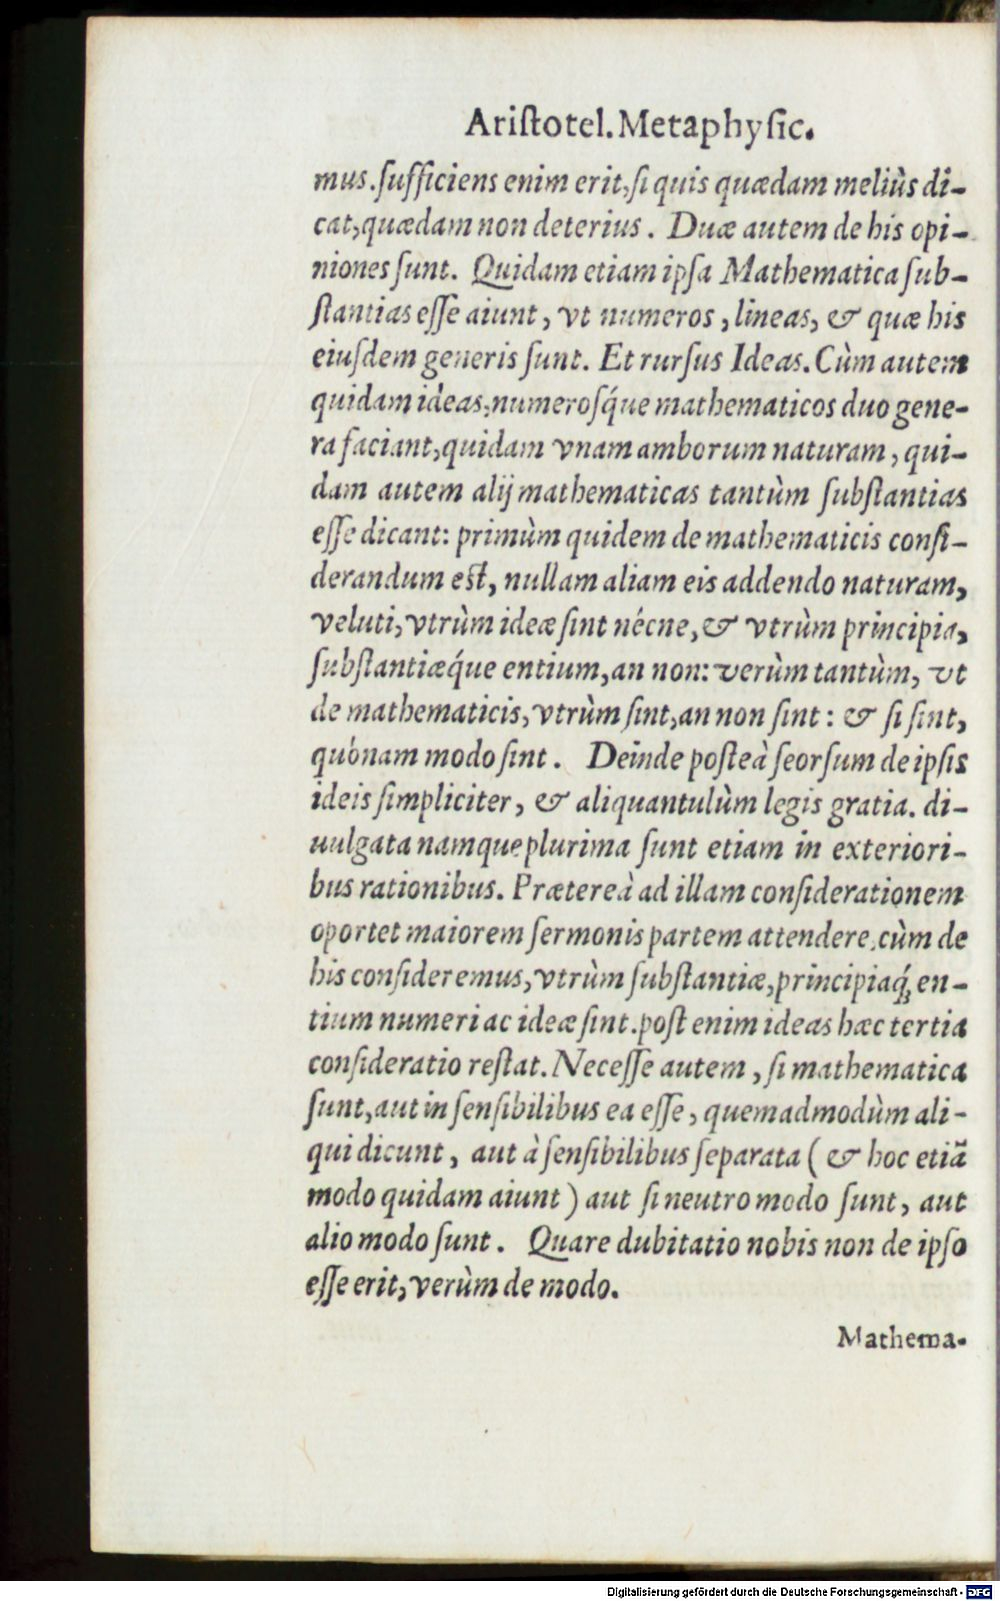 Ariſtotel. Metaphyſic.
mus. ſufficiens enim erit, ſi quis quædam meliùs di-
cat, quædam non deterius. Duæ autem de his opi-
niones ſunt. Quidam etiam ipſa Mathematica ſub-
ſtantias eſſe aiunt, vt numeros, lineas, & quæ his
eiuſdem generis ſunt. Et rurſus Ideas. Cùm autem
quidam ideas, numeroſq́ue mathematicos duo gene-
ra faciant, quidam vnam amborum naturam, qui-
dam autem alij mathematicas tantùm ſubſtantias
eſſe dicant: primùm quidem de mathematicis conſi-
derandum eſt, nullam aliam eis addendo naturam,
veluti, vtrùm ideæ ſint nécne, & vtrùm principia,
ſubſtantiæq́ue entium, an non: verùm tantùm, vt
de mathematicis, vtrùm ſint, an non ſint: & ſi ſint,
quónam modo ſint. Deinde poſteà ſeorſum de ipſis
ideis ſimpliciter, & aliquantulùm legis gratia. di-
uulgata namque plurima ſunt etiam in exteriori-
bus rationibus. Prætereà ad illam conſiderationem
oportet maiorem ſermonis partem attendere, cùm de
his conſideremus, vtrùm ſubſtantiæ, principiaq́; en-
tium numeri ac ideæ ſint. poſt enim ideas hæc tertia
conſideratio reſtat. Neceſſe autem, ſi mathematica
ſunt, aut in ſenſibilibus ea eſſe, quemadmodùm ali-
qui dicunt, aut à ſenſibilibus ſeparata (& hoc etiã
modo quidam aiunt) aut ſi neutro modo ſunt, aut
alio modo ſunt. Quare dubitatio nobis non de ipſo
eſſe erit, verùm de modo.
Mathema-
Digitalisierung gefördert durch die Deutsche Forschungsgemeinschaft - DFG